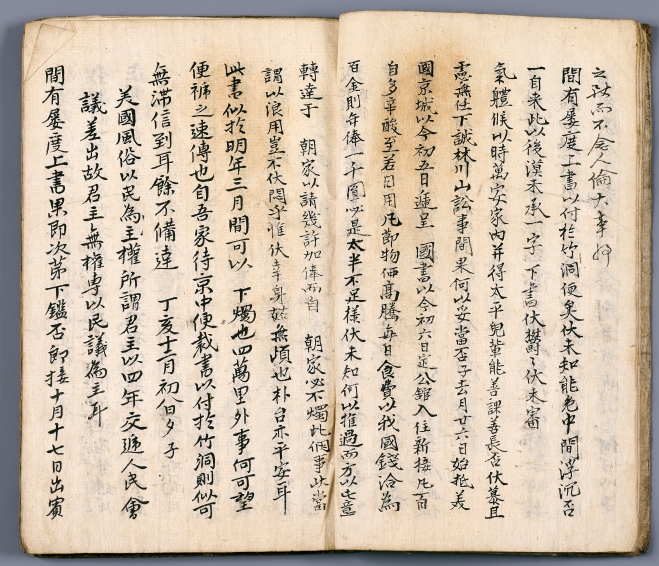 之計而不念人倫大幸好
間有屢度上書以付於竹洞便矣伏未知能免中間浮沉否
一自來此以後漠未承一字 下書伏鬱〻伏未審
氣軆候以時萬安家內幷得太平兒輩能善課善長否伏慕且
慮無任下誠林川山訟事間果何以妥當否子去月廿六日始抵美
國京城以今初五日遞呈 國書以今初六日定公舘入住新接凡百
自多辛酸至若日用凡節物価高騰每日食費以我國錢洽為
百金則年俸一千圓必是太半不足樣伏未知何以推過而方以此意
轉達于 朝家以請幾許加俸而自 朝家必不燭此個事此當
謂以浪用豈不伏悶乎惟伏幸身姑無煩也朴台亦平安耳
此書似於明年三月間可以 下燭也四萬里外事何可望
便褫之速傳也自吾家待京中便裁書以付於竹洞則似可
無滯信到耳餘不備達 丁亥十二月初八日夕子
美國風俗以民為主權所謂君主以四年交遞人民會
議差出故君主無權専以民議為主耳
間有屢度上書果即次第下鑑否即接十月十七日出賓